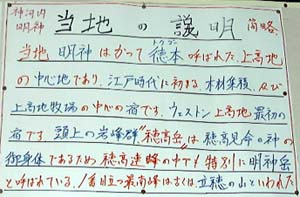 神河内
明神 当地の説明 簡略
当地 明神はかつて徳本呼ばれた、上高地
トクゴウ
の中心地であり、江戸時代に初まる、木材伐採、及び
上高地牧場の中心の宿です。ウェストン上高地最初の
宿です 頭上の岩峰群"穂高岳"は穂高見命の神の
御身体であるため穂高連峰の中で特別に明神岳
と呼ばれている。1番目立つ最南峰は古くは立穂の山といわれた